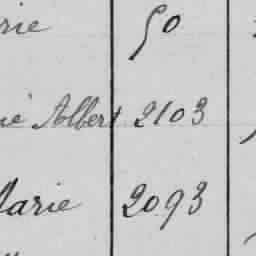 rie 50
né Albert 2103
Marie 2093